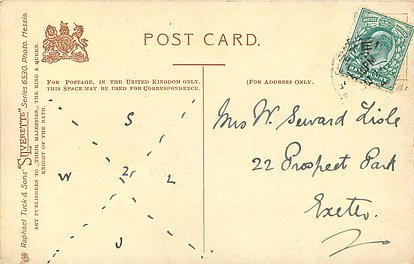 POST CARD.
FOR POSTAGE, IN THE UNITED KINGDOM ONLY,
THIS SPACE MAY BE USED FOR CORRESPONDENCE.
(FOR ADDRESS ONLY.
Raphael Tuck & Sons' "SILVERETTE" Series 6530. Photo. Hessia.
ART PUBLISHERS TO THEIR MAJESTIES, THE KING & QUEEN.
KNIGHT OF THE BATH.
S
W 2 L
J
Mrs W. Seward Lisle
22 Prospect Park
Exeter